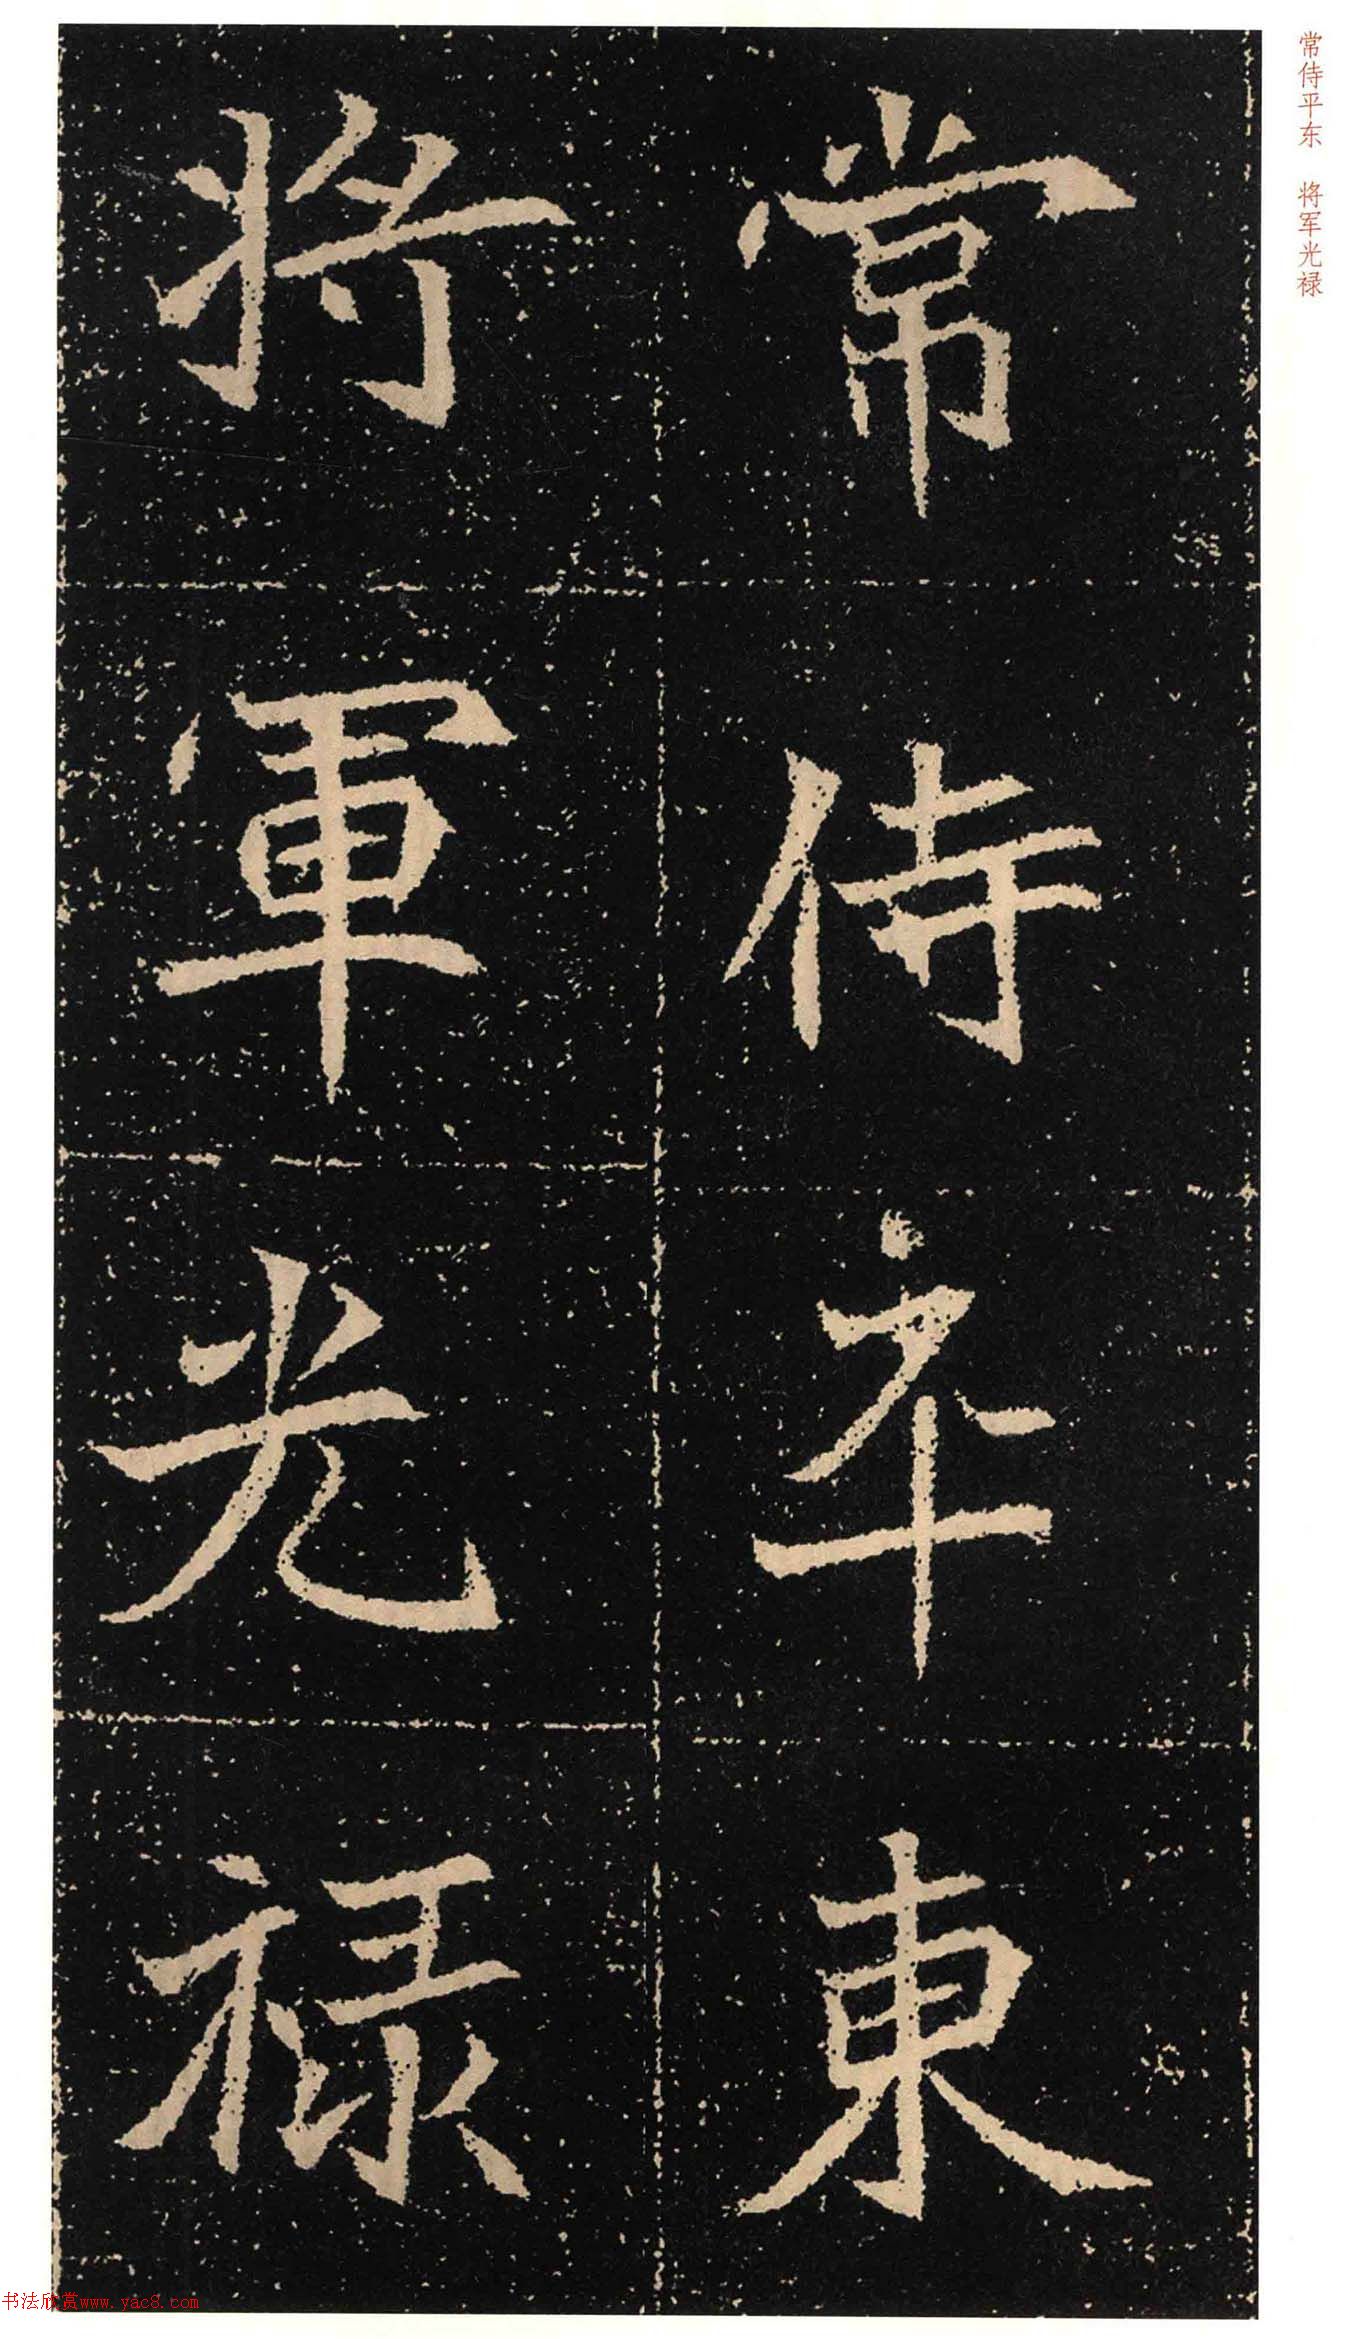 常侍平东 将军光禄
常侍平東
将軍光禄
书法欣赏www.yac8.com